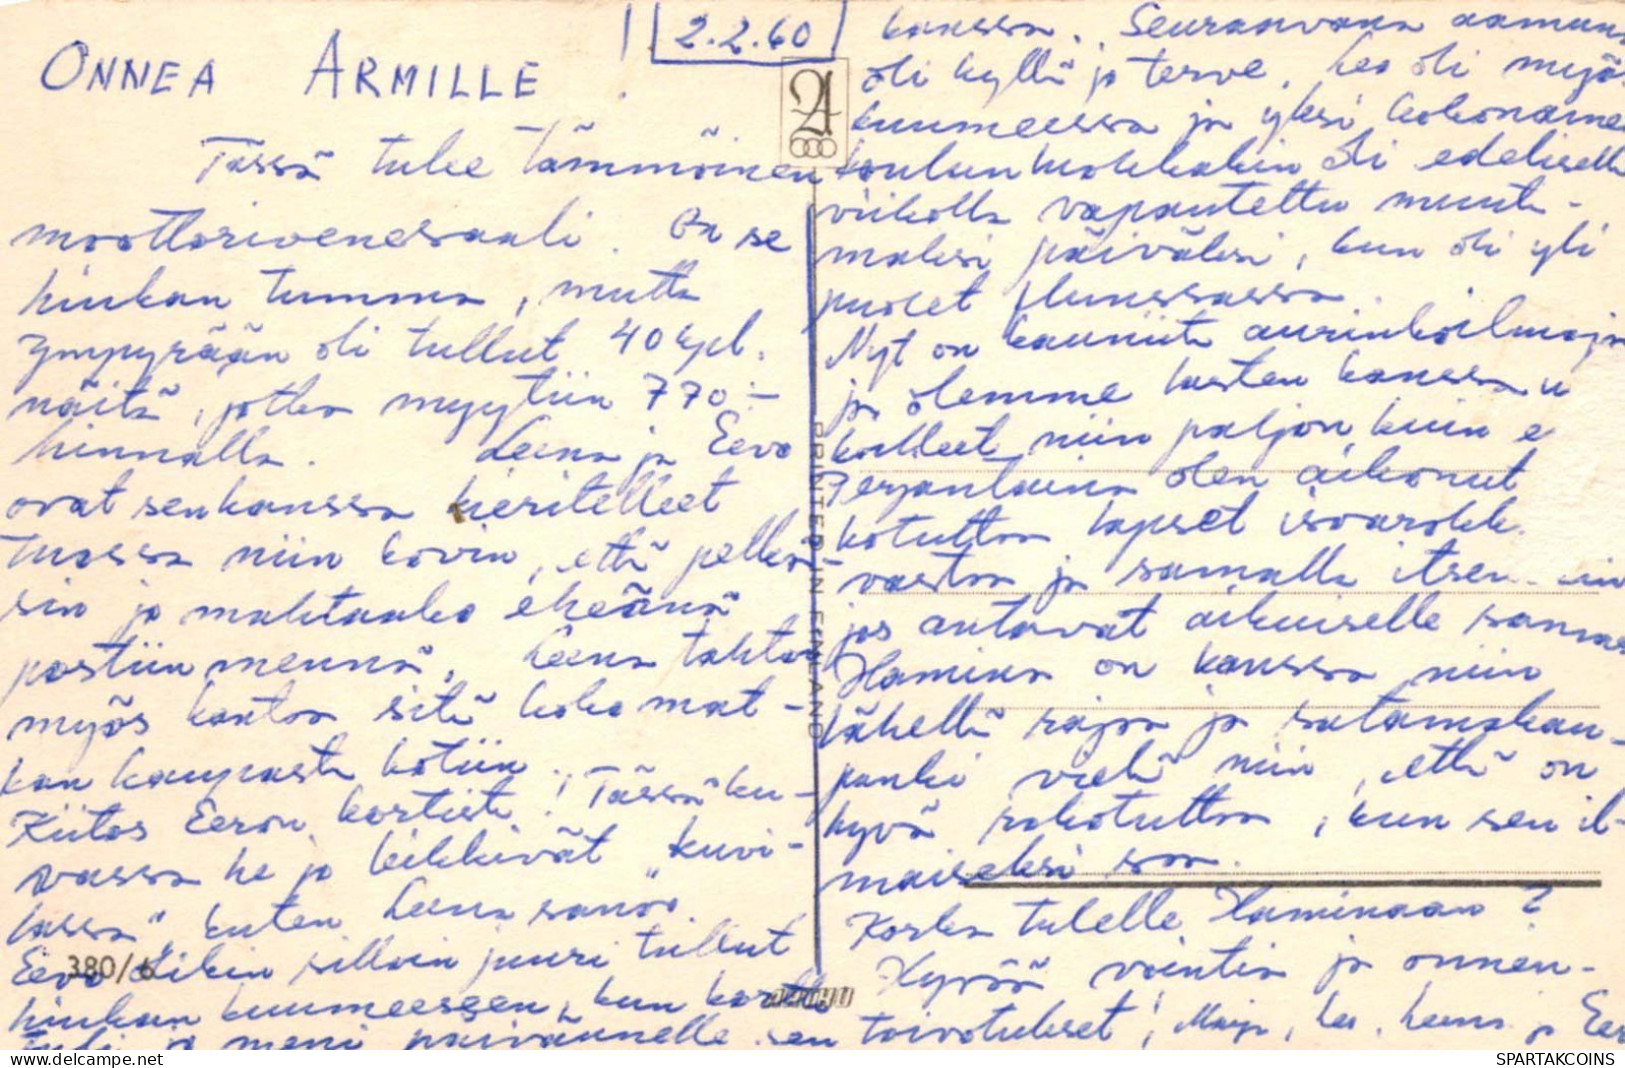 2.2.60
ONNEA ARMILLE !
Tässä tulee tämmöinen
moottorivenevaali. On se
hiukan tumma, mutta
ympyrään oli tullut 40 kpl.
näitä, jotka myytiin 770:-
hinnalla. Leena ja Eero
ovat sen kanssa kieritelleet
tuossa niin kovin, että pelkä-
sin jo mahtaako eheänä
postiin mennä. Leena tahtoo
myös kantaa sitä koko mat-
kan kaupasta kotiin.
Kiitos Eeron kortista! Tässä ku-
vassa he jo leikkivät "kuvi-
lassa" kuten Leena sanoo.
Eero olikin silloin juuri tullut
hiukan kuumeeseen, kun kortti
tuli ja meni päiväunelle sen
kanssa. Seuraavana aamuna
oli kyllä jo terve. Leo oli myös
kuumeessa ja yksi kokonainen
koululuokkakin oli edellisellä
viikolla vapautettu muuta-
maksi päiväksi, kun oli yli
puolet flunssassa.
Nyt on kauniita aurinkoilmoja
ja olemme lasten kanssa u
koilleet niin paljon kuin e
Perjantaina olen aikonut
rokotuttaa lapset isoarokk.
vastaan ja samalla itsen
jos antavat aikuiselle saman
Hamina on kanssa niin
lähellä rajaa ja satamakau-
punki vielä niin, että on
hyvä rokotuttaa, kun sen il-
maiseksi saa.
Koska tulette Haminaan?
Hyvää vointia ja onnen-
toivotukset! Maija, Leo, Leena ja Eero
PRINTED IN FINLAND
380/6